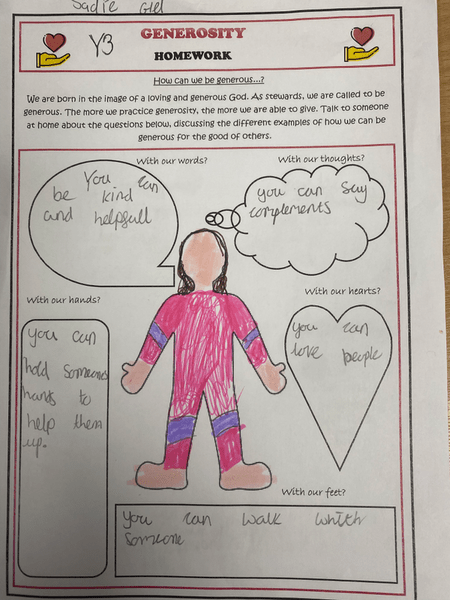 Sadie
Y3
GENEROSITY
HOMEWORK
How can we be generous...?
We are born in the image of a loving and generous God. As stewards, we are called to be
generous. The more we practice generosity, the more we are able to give. Talk to someone
at home about the questions below, discussing the different examples of how we can be
generous for the good of others.
With our words?
You can
be kind
and helpfull
With our thoughts?
you can say
complements
With our hands?
you can
hold someones
hands to
help them
up.
With our hearts?
you can
love people
With our feet?
you can walk whith
someone